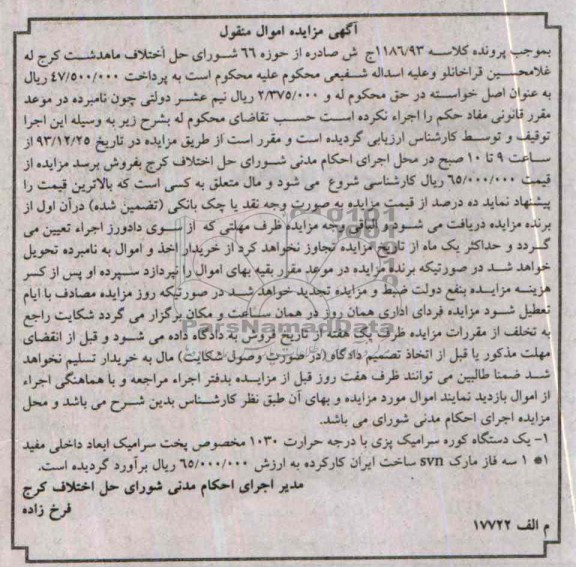 آگهی مزایده اموال منقول
بموجب پرونده کلاسه ۱۱۸۶/۹۳ج ش صادره از حوزه ۶۶ شورای حل اختلاف ماهدشت کرج له
غلامحسین قراخانلو وعلیه اسداله شفیعی محکوم علیه محکوم است به پرداخت ۴۷/۵۰۰/۰۰۰ ریال
به عنوان اصل خواسته در حق محکوم له و ۲/۳۷۵/۰۰۰ ریال نیم عشر دولتی چون نامبرده در موعد
مقرر قانونی مفاد حکم را اجراء نکرده است حسب تقاضای محکوم له بشرح زیر به وسیله این اجرا
توقیف و توسط کارشناس ارزیابی گردیده است و مقرر است از طریق مزایده در تاریخ ۹۳/۱۲/۲۵ از
ساعت ۹ تا ۱۰ صبح در محل اجرای احکام مدنی شورای حل اختلاف کرج بفروش برسد مزایده از
قیمت ۶۵/۰۰۰/۰۰۰ ریال کارشناسی شروع می شود و مال متعلق به کسی است که بالاترین قیمت را
پیشنهاد نماید ده درصد از قیمت مزایده به صورت وجه نقد یا چک بانکی (تضمین شده) درآن اول از
برنده مزایده دریافت می شود و الباقی وجه مزایده ظرف مهلتی که از سوی دادورز اجراء تعیین می
گردد و حداکثر یک ماه از تاریخ مزایده تجاوز نخواهد کرد از خریدار اخذ و اموال به نامبرده تحویل
خواهد شد در صورتیکه برنده مزایده در موعد مقرر بقیه بهای اموال را نپردازد سپرده او پس از کسر
هزینه مزایده بنفع دولت ضبط و مزایده تجدید خواهد شد در صورتیکه روز مزایده مصادف با ایام
تعطیل شود مزایده فردای اداری همان روز در همان ساعت و مکان برگزار می گردد شکایت راجع
به تخلف از مقررات مزایده ظرف یک هفته از تاریخ فروش به دادگاه داده می شود و قبل از انقضای
مهلت مذکور یا قبل از اتخاذ تصمیم دادگاه (در صورت وصول شکایت) مال به خریدار تسلیم نخواهد
شد ضمنا طالبین می توانند ظرف هفت روز قبل از مزایده بدفتر اجراء مراجعه و با هماهنگی اجراء
از اموال بازدید نمایند اموال مورد مزایده و بهای آن طبق نظر کارشناس بدین شرح می باشد و محل
مزایده اجرای احکام مدنی شورای می باشد.
۱- یک دستگاه کوره سرامیک پزی با درجه حرارت ۱۰۳۰ مخصوص پخت سرامیک ابعاد داخلی مفید
۱* ۱ سه فاز مارک svn ساخت ایران کارکرده به ارزش ۶۵/۰۰۰/۰۰۰ ریال برآورد گردیده است.
مدیر اجرای احکام مدنی شورای حل اختلاف کرج
فرخ زاده
م الف ۱۷۷۲۲
ParsNamadData